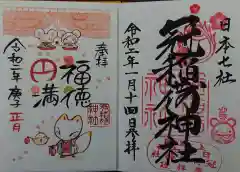 日本七社
冠稲荷神社
令和二年一月十四日参拝
奉拝
福徳
円満
令和二年庚子
正月
冠稲荷
神社